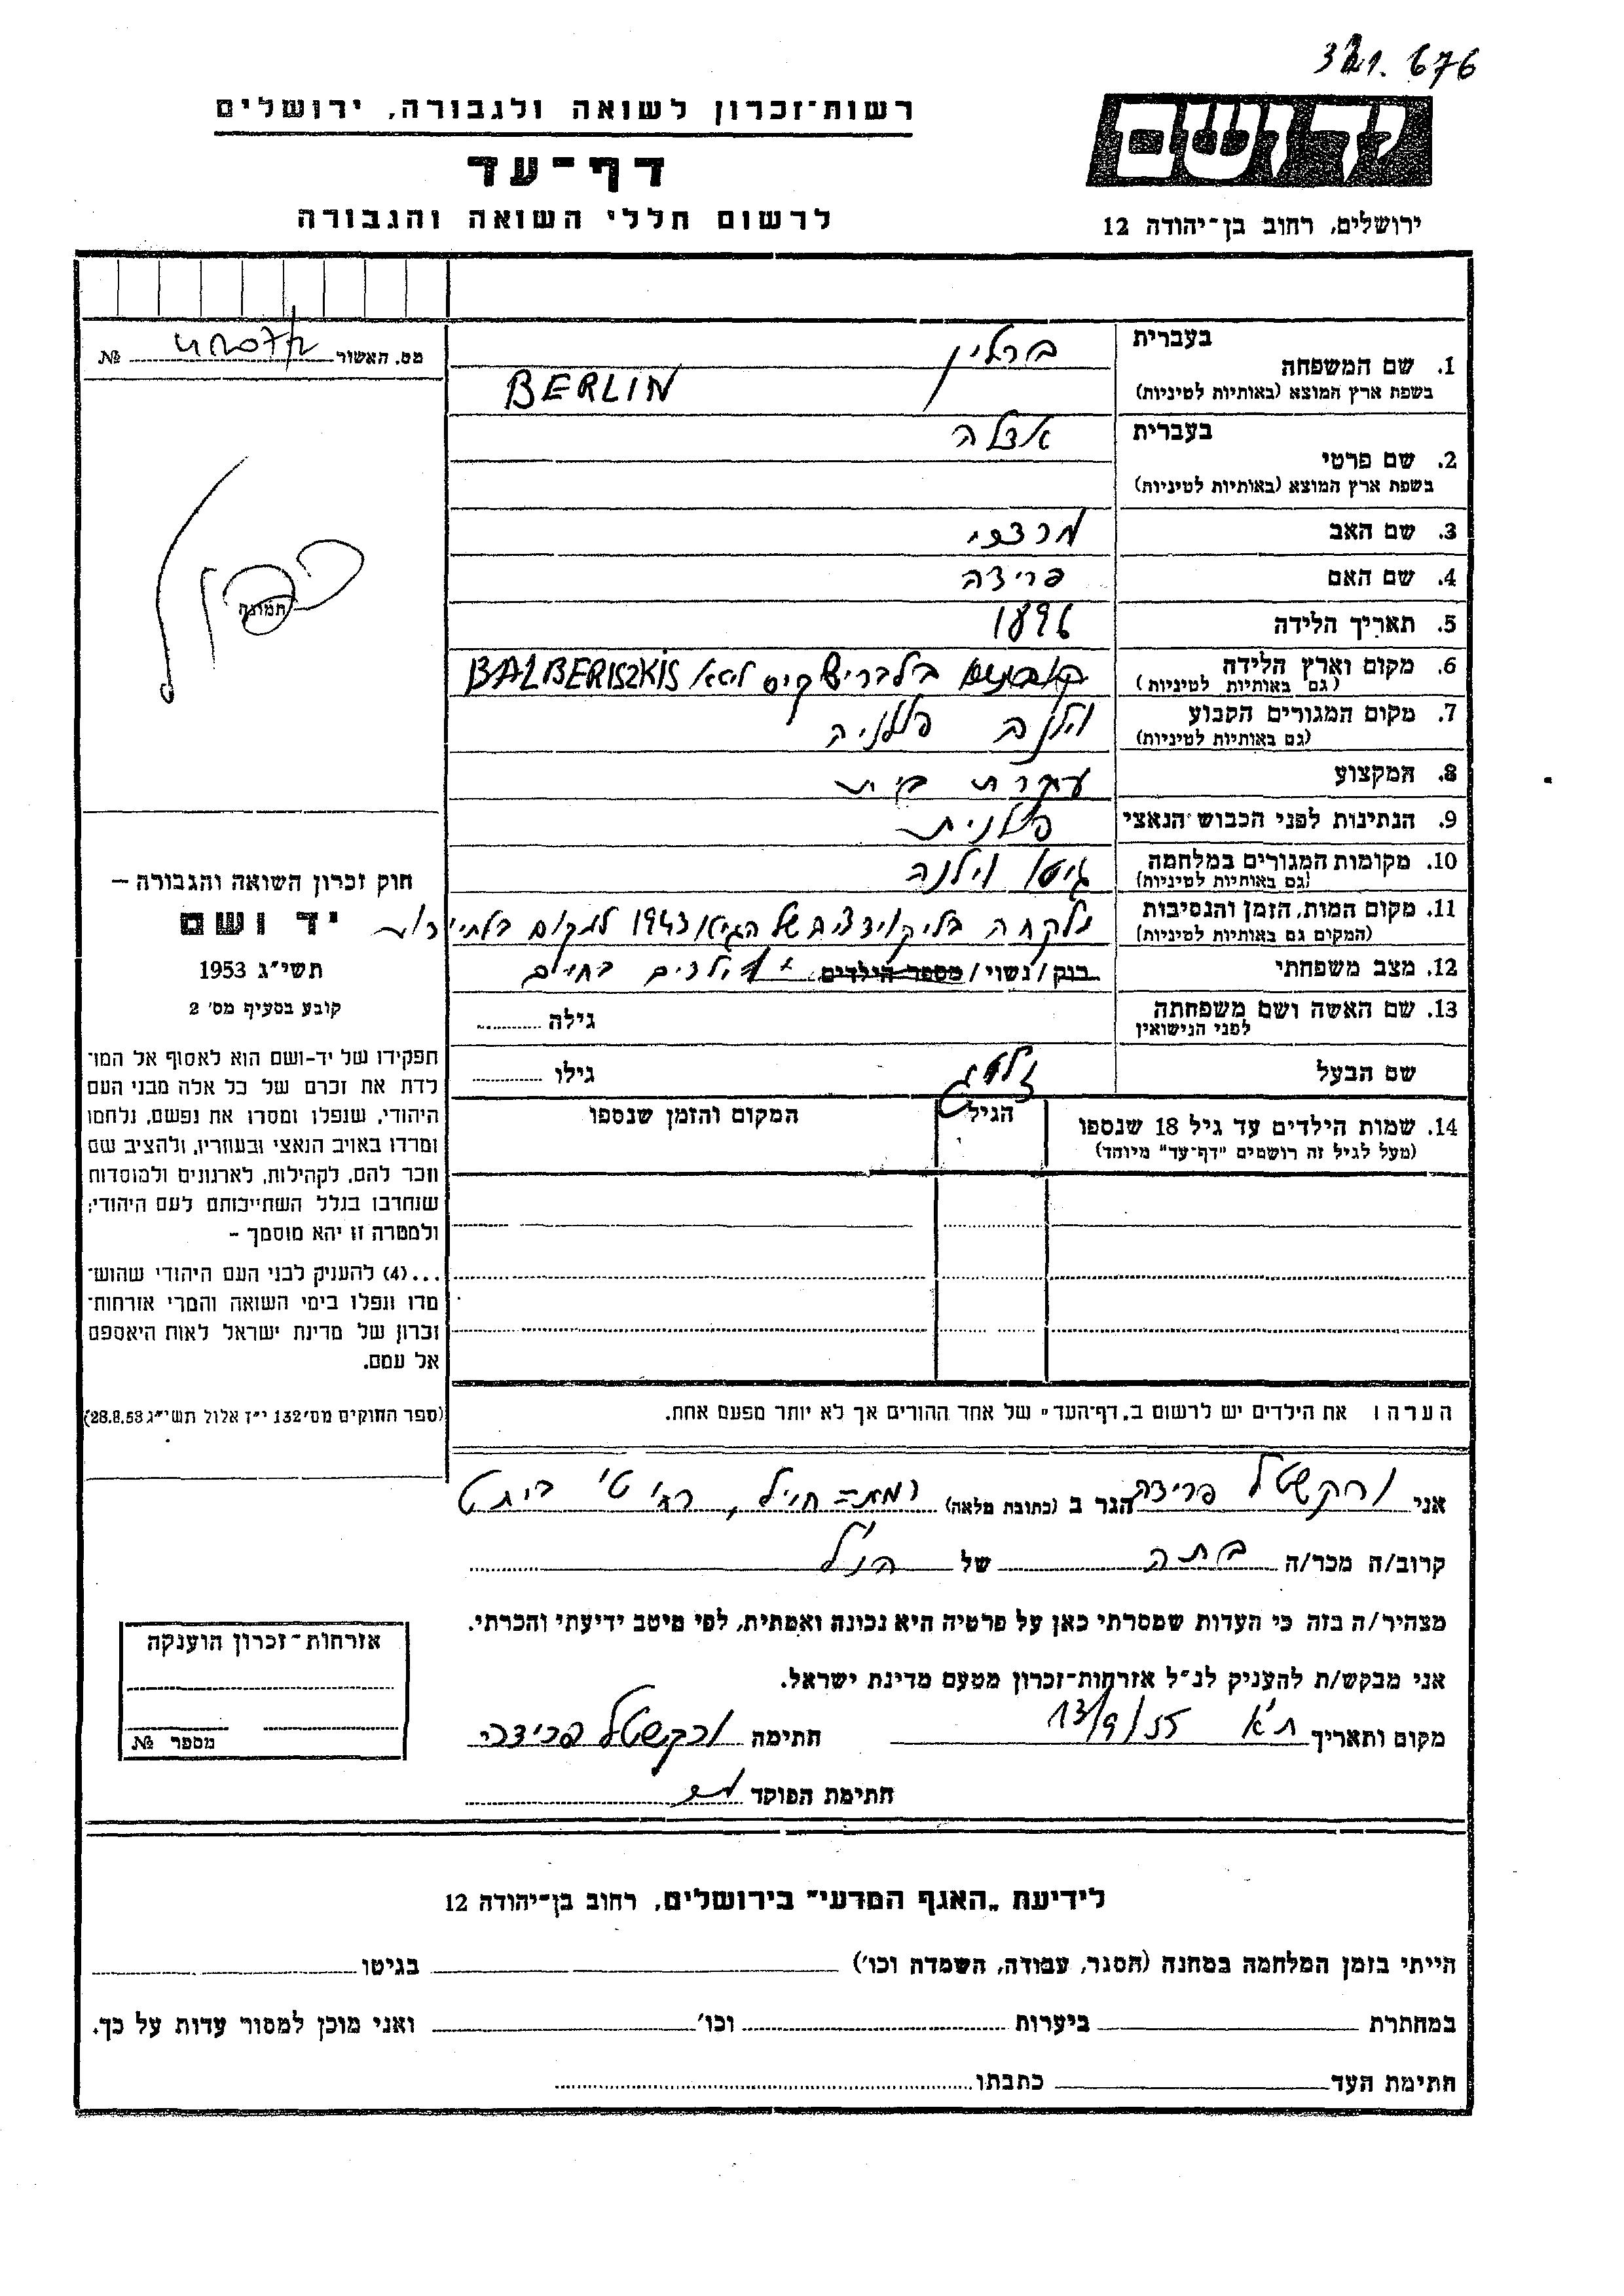 321.676
רשות־זכרון לשואה ולגבורה, ירושלים
יד ושם
דף־עד
לרשום חללי השואה והגבורה
ירושלים, רחוב בן־יהודה 12
מס. האשור № 
1. שם המשפחה בעברית ברלין
בשפת ארץ המוצא (באותיות לטיניות) BERLIN
2. שם פרטי בעברית
בשפת ארץ המוצא (באותיות לטיניות)
3. שם האב מרדכי
4. שם האם פרידה
5. תאריך הלידה 1896
6. מקום וארץ הלידה בלברישקיס ליטא BALBERISZKIS
(גם באותיות לטיניות)
7. מקום המגורים הקבוע וילנה פולניה
(גם באותיות לטיניות)
8. המקצוע עקרת בית
9. הנתינות לפני הכבוש הנאצי פולנית
10. מקומות המגורים במלחמה גיטו וילנה
(גם באותיות לטיניות)
11. מקום המות, הזמן והנסיבות נלקחה בליקוידציה של הגיטו 1943 למקום בלתי ידוע
(המקום גם באותיות לטיניות)
12. מצב משפחתי רווק/ נשוי/ מספר הילדים ילדים בחיים
13. שם האשה ושם משפחתה גילה
לפני הנישואין
שם הבעל זליג גילו
14. שמות הילדים עד גיל 18 שנספו הגיל המקום והזמן שנספו
(מעל לגיל זה רושמים "דף־עד" מיוחד)
הערה: את הילדים יש לרשום ב„דף־העד" של אחד ההורים אך לא יותר מפעם אחת.
תמונה
חוק זכרון השואה והגבורה –
יד ושם
תשי"ג 1953
קובע בסעיף מס' 2
תפקידו של יד-ושם הוא לאסוף אל המו־
לדת את זכרם של כל אלה מבני העם
היהודי, שנפלו ומסרו את נפשם, נלחמו
ומרדו באויב הנאצי ובעוזריו, ולהציב שם
וזכר להם, לקהילות, לארגונים ולמוסדות
שנחרבו בגלל השתייכותם לעם היהודי;
ולמטרה זו יהא מוסמך –
...(4) להעניק לבני העם היהודי שהוש־
מדו ונפלו בימי השואה והמרי אזרחות־
זכרון של מדינת ישראל לאות היאספם
אל עמם.
(ספר החוקים מס' 132 י"ז אלול תשי"ג 28.8.53)
אני ורקשטל פרידה הגר ב (כתובת מלאה) רמת־חייל,
קרוב/ה מכר/ה בתה של הנ"ל
מצהיר/ה בזה כי העדות שמסרתי כאן על פרטיה היא נכונה ואמתית, לפי מיטב ידיעתי והכרתי.
אני מבקש/ת להעניק לנ"ל אזרחות־זכרון מטעם מדינת ישראל.
מקום ותאריך ת"א 13/9/55 חתימה ורקשטל פרידה
חתימת הפוקד
אזרחות־זכרון הוענקה
מספר №
לידיעת „האגף המדעי" בירושלים, רחוב בן־יהודה 12
הייתי בזמן המלחמה במחנה (הסגר, עבודה, השמדה וכו') בגיטו
במחתרת ביערות וכו' ואני מוכן למסור עדות על כך.
חתימת העד כתבתו